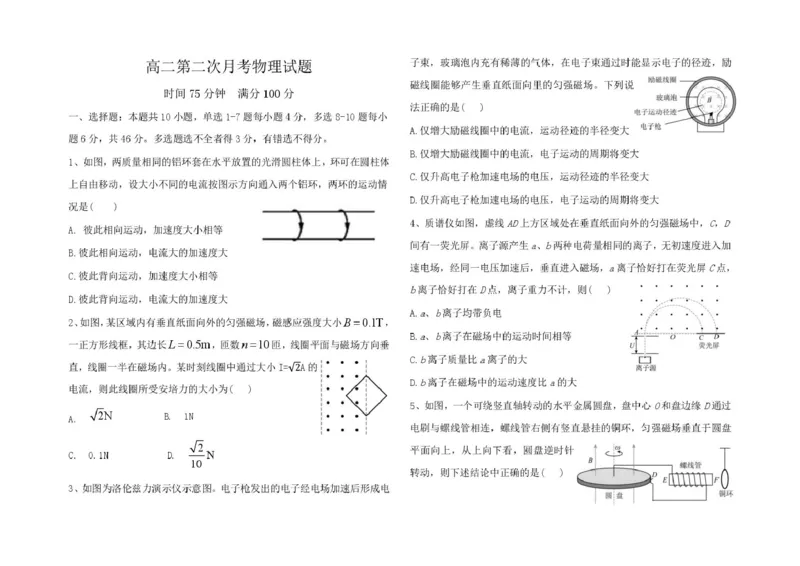 高二第二次月考物理试题
时间75分钟 满分100分
一、选择题：本题共10小题，单选1-7题每小题4分，多选8-10题每小
题6分，共46分。多选题选不全者得3分，有错选不得分。
1、如图，两质量相同的铝环套在水平放置的光滑圆柱体上，环可在圆柱体
上自由移动，设大小不同的电流按图示方向通入两个铝环，两环的运动情
况是( )
A. 彼此相向运动，加速度大小相等
B.彼此相向运动，电流大的加速度大
C.彼此背向运动，加速度大小相等
D.彼此背向运动，电流大的加速度大
2、如图,某区域内有垂直纸面向外的匀强磁场,磁感应强度大小B=0.1T，
一正方形线框，其边长L=0.5m，匝数n=10匝，线圈平面与磁场方向垂
直，线圈一半在磁场内。某时刻线圈中通过大小I=√2A的
电流，则此线圈所受安培力的大小为( )
A. √2N B. 1N
C. 0.1N D. √2/10 N
3、如图为洛伦兹力演示仪示意图。电子枪发出的电子经电场加速后形成电
子束，玻璃泡内充有稀薄的气体，在电子束通过时能显示电子的径迹，励
磁线圈能够产生垂直纸面向里的匀强磁场。下列说
法正确的是( )
励磁线圈
玻璃泡
B
电子运动径迹
电子枪
A.仅增大励磁线圈中的电流，运动径迹的半径变大
B.仅增大励磁线圈中的电流，电子运动的周期将变大
C.仅升高电子枪加速电场的电压，运动径迹的半径变大
D.仅升高电子枪加速电场的电压，电子运动的周期将变大
4、质谱仪如图，虚线AD上方区域处在垂直纸面向外的匀强磁场中，C，D
间有一荧光屏。离子源产生a、b两种电荷量相同的离子，无初速度进入加
速电场，经同一电压加速后，垂直进入磁场，a离子恰好打在荧光屏C点，
b离子恰好打在D点，离子重力不计，则( )
A.a、b离子均带负电
B.a、b离子在磁场中的运动时间相等
C.b离子质量比a离子的大
D.b离子在磁场中的运动速度比a的大
A
O
C
D
U
荧光屏
离子源
5、如图，一个可绕竖直轴转动的水平金属圆盘，盘中心O和盘边缘D通过
电刷与螺线管相连，螺线管右侧有竖直悬挂的铜环，匀强磁场垂直于圆盘
平面向上，从上向下看，圆盘逆时针
转动，则下述结论中正确的是( )
B
ω
D
E
螺线管
F
圆 盘
铜环